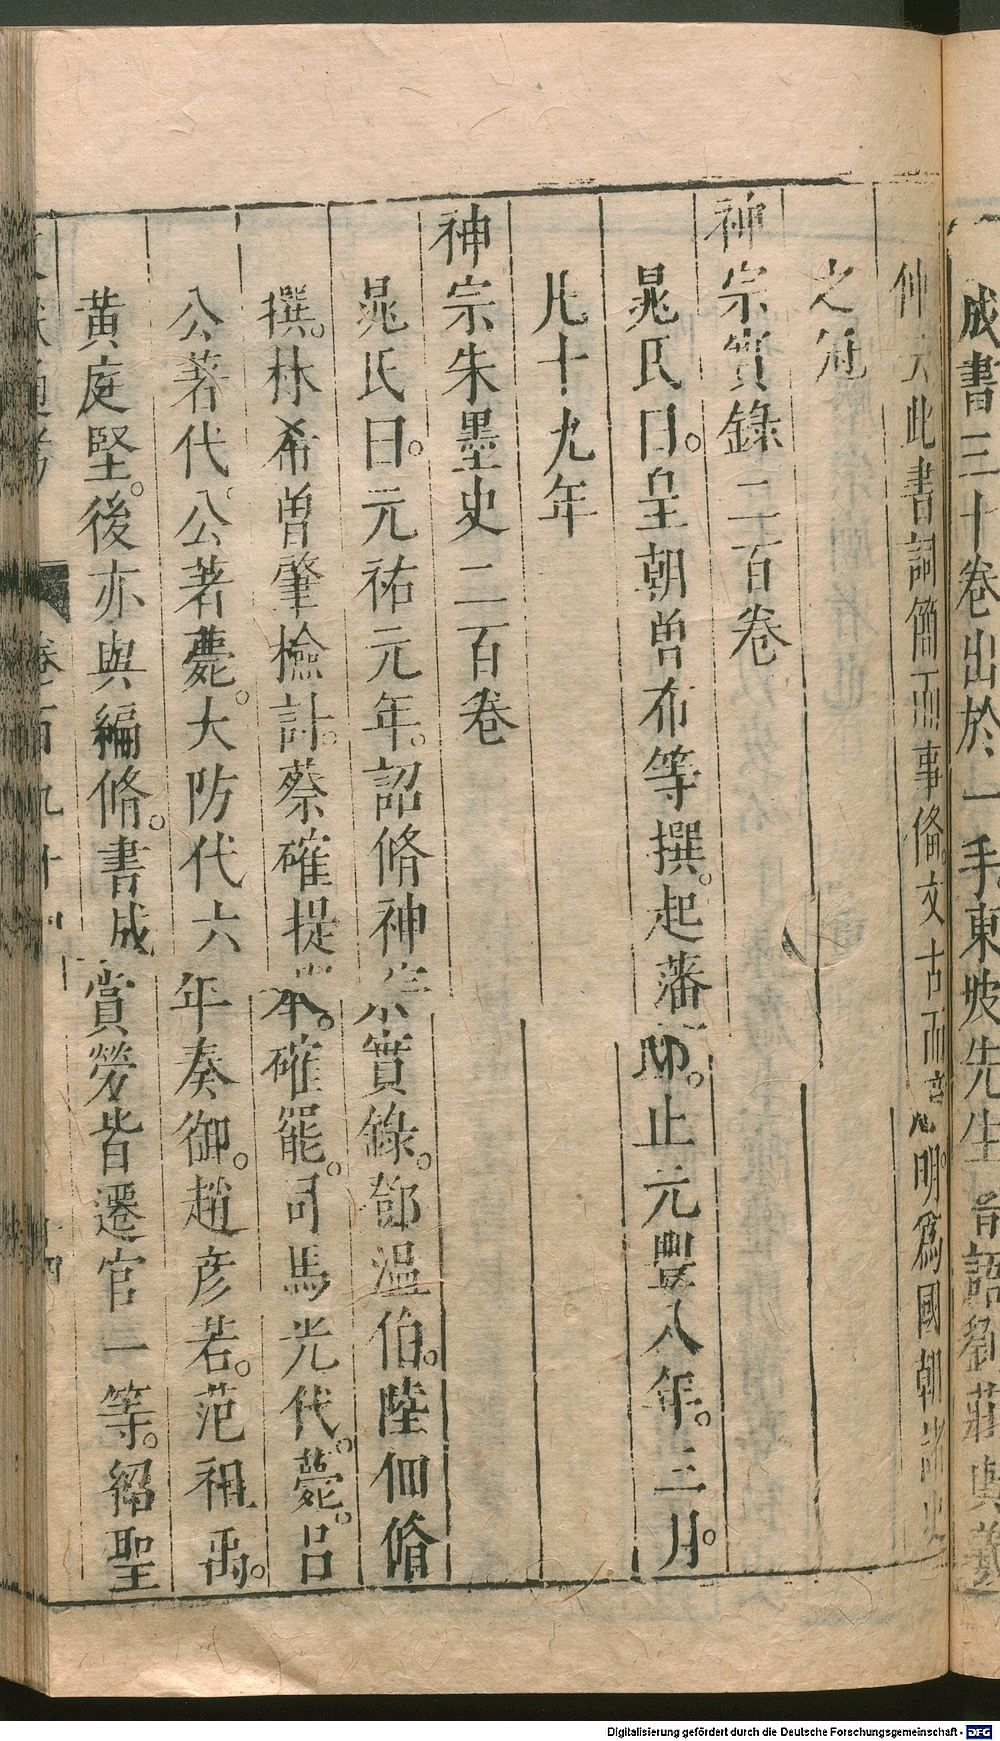 成書三十卷出於一手東坡先生 語劉莊輿
仲 此書詞簡而事俻。文古而意明。爲國朝諸史
之冠
神宗實錄二百卷
晁氏曰。皇朝曾布等撰。起藩邸。止元豐八年。三月。
凡十九年
神宗朱墨史二百卷
晁氏曰。元祐元年。詔脩神宗實錄。鄧溫伯。陸佃脩
撰。林希曾肇檢計。蔡確提舉。確罷。司馬光代。薨。呂
公著代。公著薨。大防代六年奏御。趙彦若。范祖禹。
黃庭堅。後亦與編脩。書成賞勞皆遷官一等。紹聖
通考 卷百九十 十四
Digitalisierung gefördert durch die Deutsche Forschungsgemeinschaft - DFG